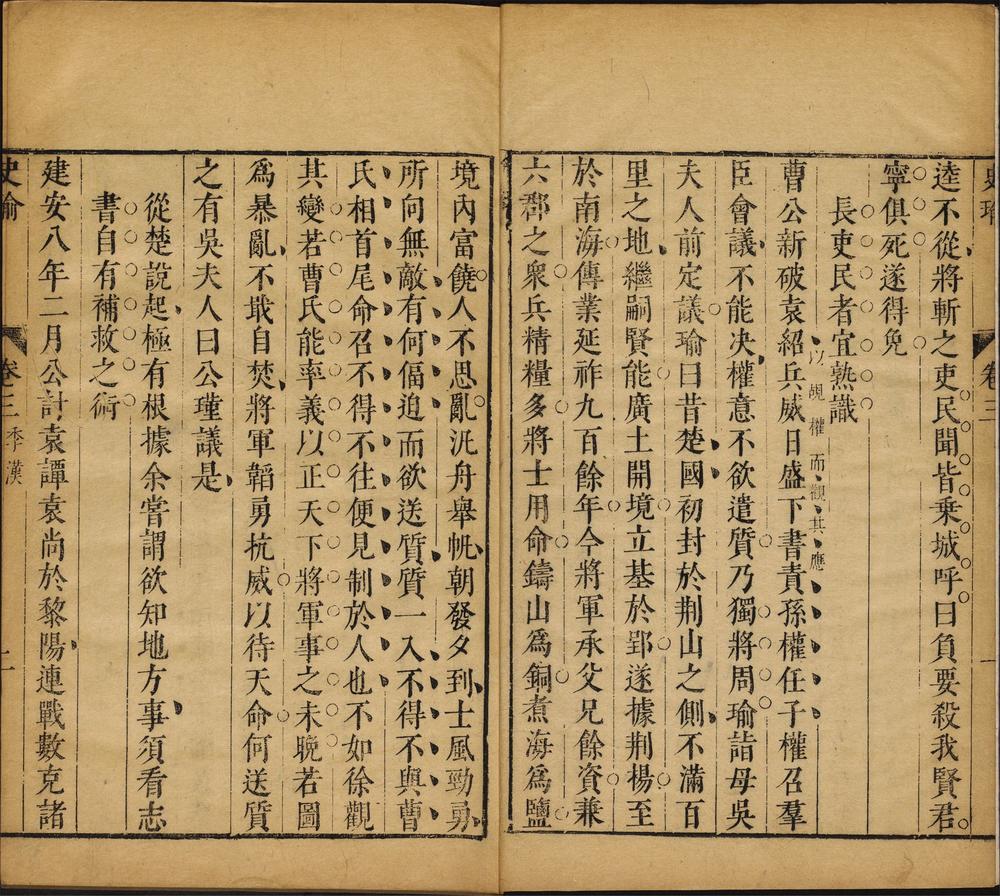 史瑜 卷三 一
逵不從將斬之吏民聞皆乗城呼曰負要殺我賢君
寧俱死遂得免
長吏民者宜熟識
以覘權而觀其應
曹公新破袁紹兵威日盛下書責孫權任子權召羣
臣會議不能决權意不欲遣質乃獨將周瑜詣母吳
夫人前定議瑜曰昔楚國初封於荆山之側不滿百
里之地繼嗣賢能廣土開境立基於郢遂據荆楊至
於南海傳業延祚九百餘年今將軍承父兄餘資兼
六郡之衆兵精糧多將士用命鑄山爲銅煮海爲鹽
境內富饒人不思亂汎舟舉帆朝發夕到士風勁勇
所向無敵有何偪迫而欲送質質一入不得不與曹
氏相首尾命召不得不往便見制於人也不如徐觀
其變若曹氏能率義以正天下將軍事之未晚若圖
爲暴亂不戢自焚將軍韜勇抗威以待天命何送質
之有吳夫人曰公瑾議是
從楚說起極有根據余嘗謂欲知地方事須看志
書自有補救之術
建安八年二月公討袁譚袁尚於黎陽連戰數克諸
史瑜 卷三 季漢 二